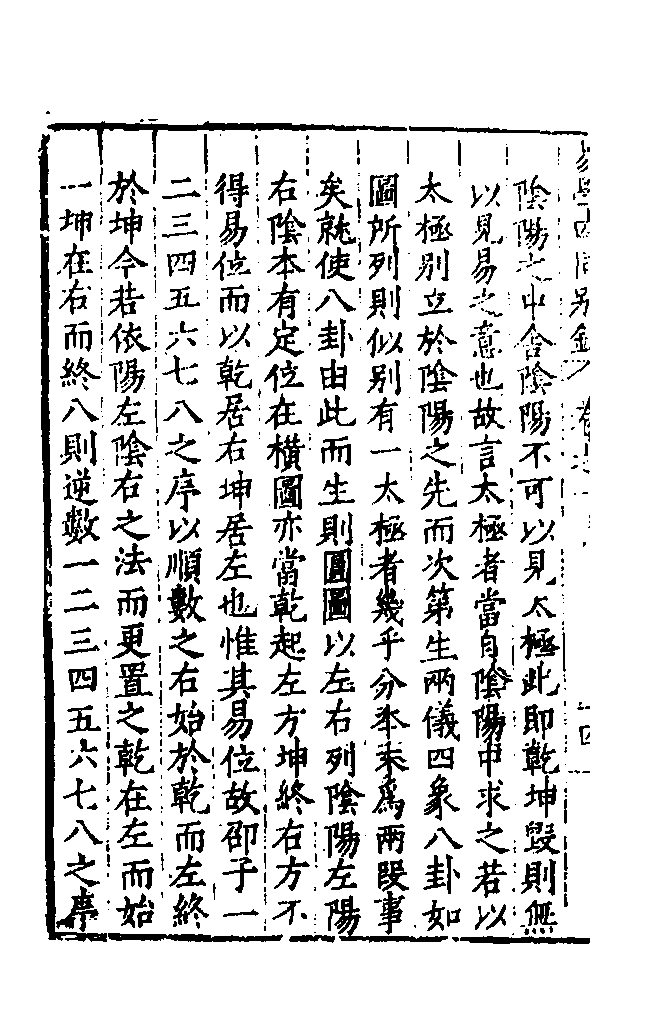 陰陽之中舍陰陽不可以見太極此即乾坤毀則無
以見易之意也故言太極者當自陰陽中求之若以
太極別立於陰陽之先而次第生兩儀四象八卦如
圖所列則似別有一太極者幾乎分本末為兩段事
矣就使八卦由此而生則圓圖以左右列陰陽左陽
右陰本有定位在橫圖亦當乾起左方坤終右方不
得易位而以乾居右坤居左也惟其易位故邵子一
二三四五六七八之序以順數之右始於乾而左終
於坤今若依陽左陰右之法而更置之乾在左而始
一坤在右而終八則逆數一二三四五六七八之序